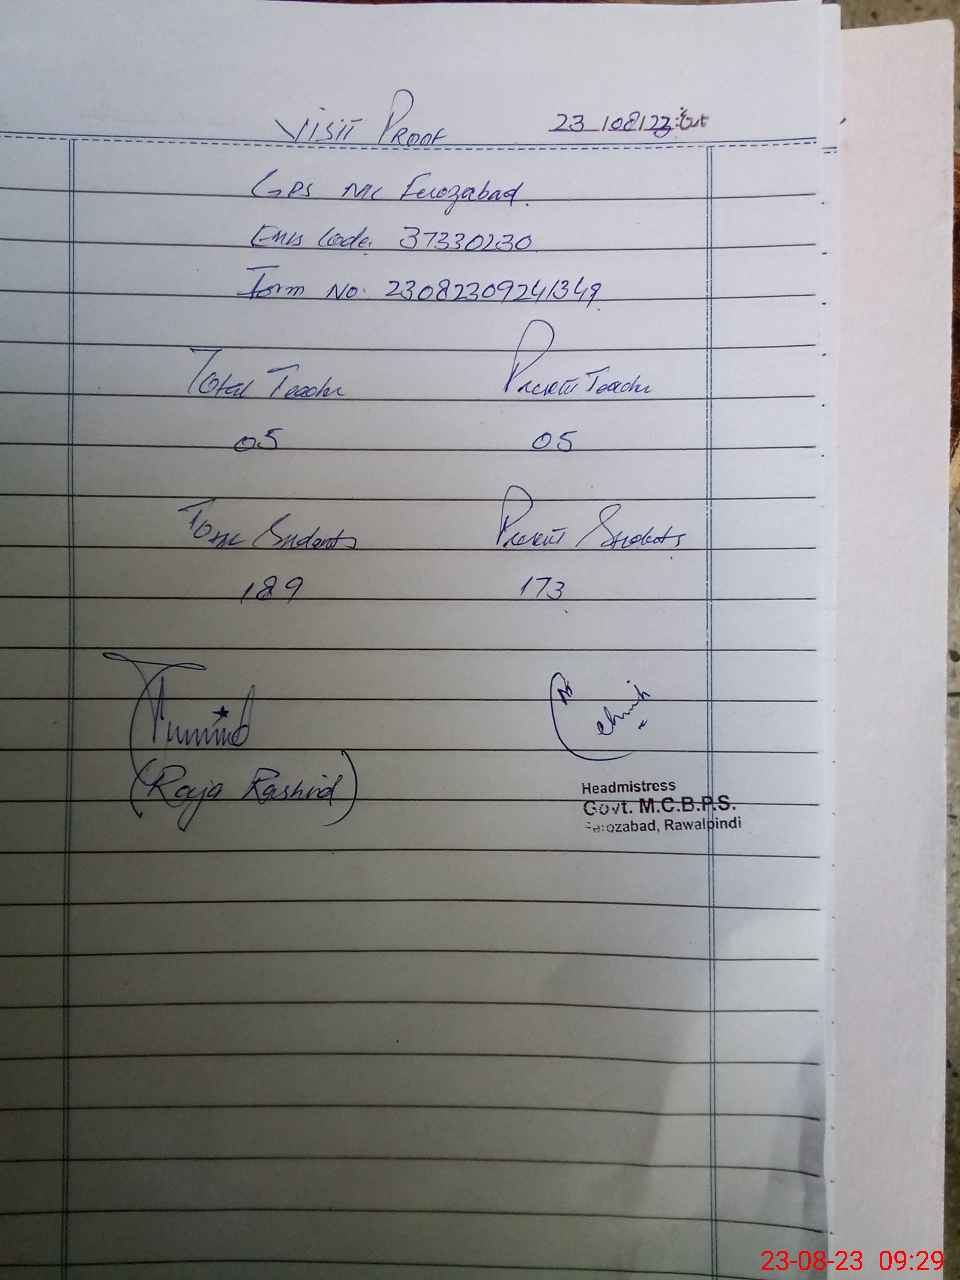 Visit Proof 23/08/23
GPS MC Ferozabad.
Emis Code. 37330230
Form No. 23082309241349
Total Teacher Present Teacher
05 05
Total Students Present Students
189 173
(Raja Rashid)
Headmistress
Govt. M.C.B.P.S.
Ferozabad, Rawalpindi
23-08-23 09:29